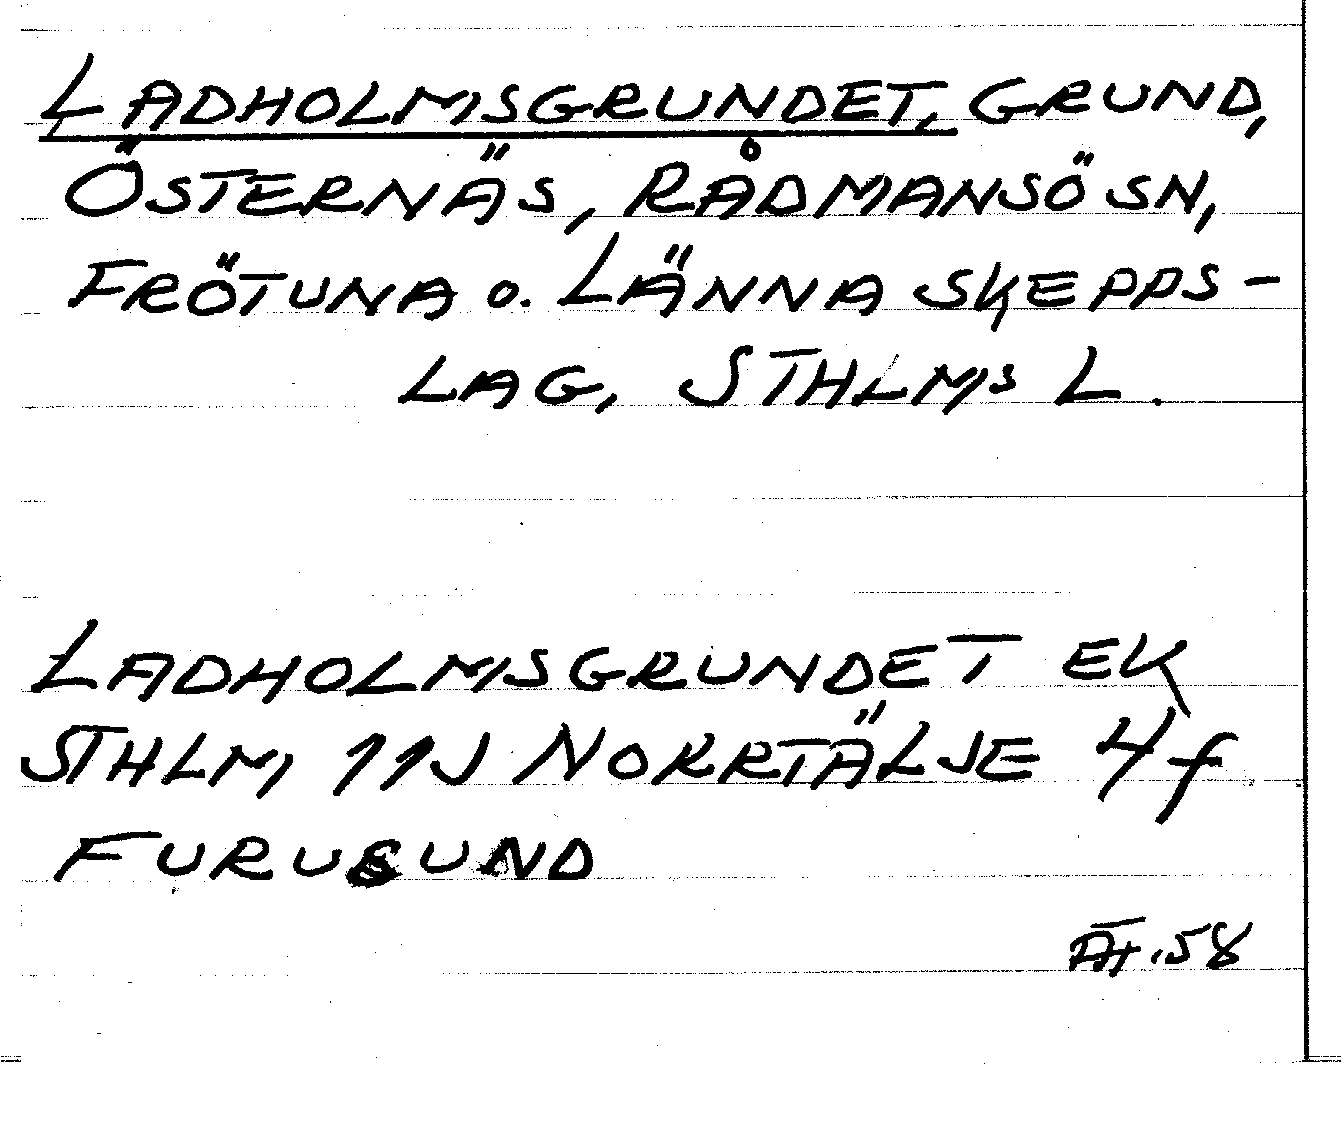 LADHOLMSGRUNDET, GRUND,
ÖSTERNÄS, RÅDMANSÖ SN,
FRÖTUNA o. LÄNNA SKEPPS-
LAG, STHLMS L.
LADHOLMSGRUNDET EK
STHLM 11J NORRTÄLJE 4f
FURUSUND
.58